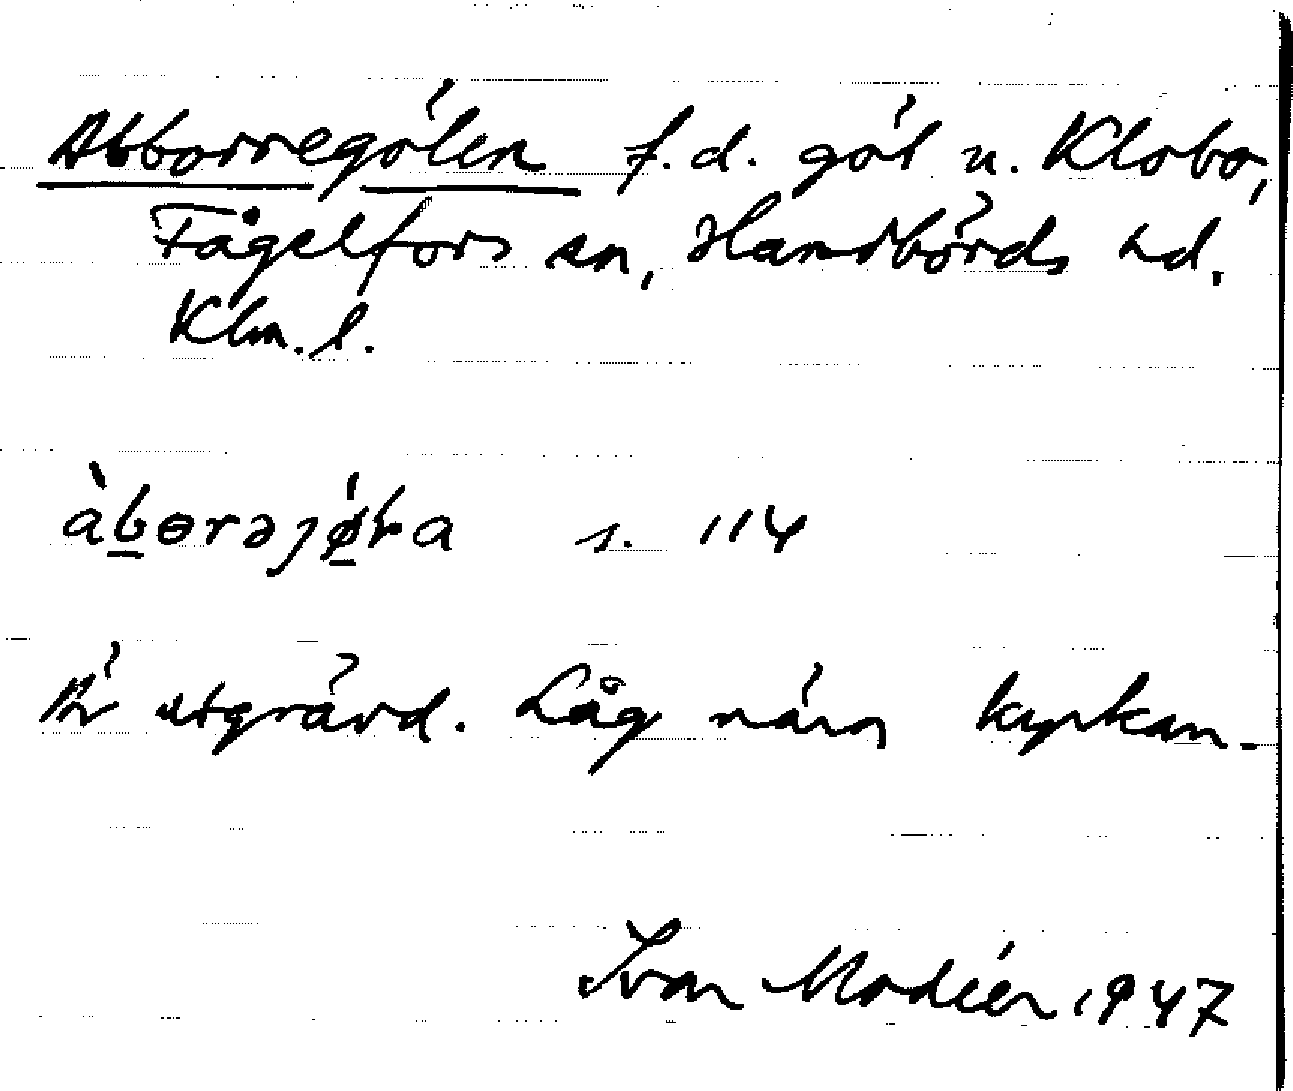 Abborregölen f.d. göl u. Klobo,
Fågelfors sn, Handbörds hd.
Klm. l.
àbɵrəȷø̀ɽa s. 114
Är utgrävd. Låg nära kyrkan.
Ivar Modéer 1947